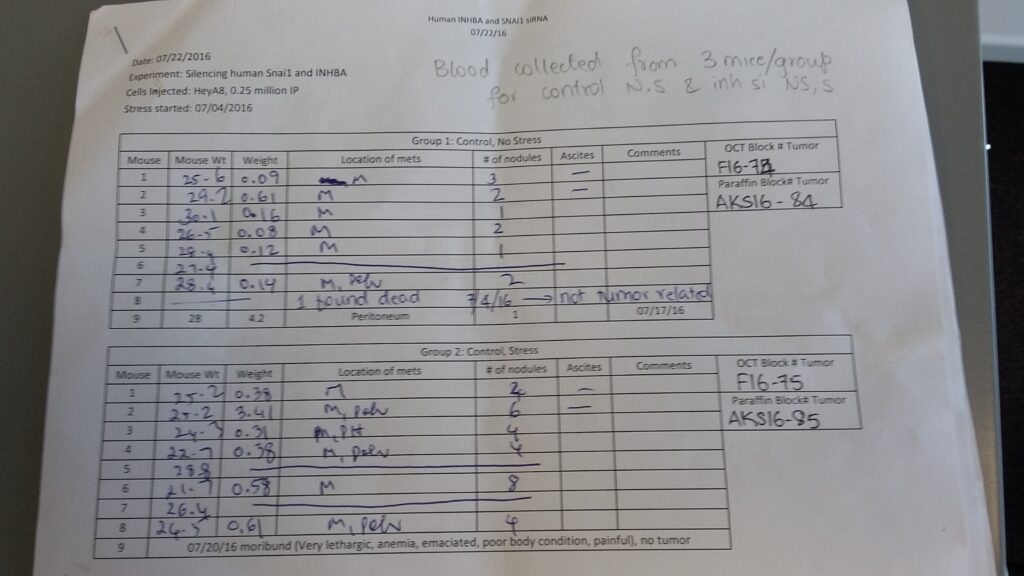 Human INHBA and SNAI1 siRNA
07/22/16
Date: 07/22/2016
Experiment: Silencing human Snai1 and INHBA
Cells Injected: HeyA8, 0.25 million IP
Stress started: 07/04/2016
Blood collected from 3 mice/group
for control N,S & inh si NS,S
Group 1: Control, No Stress
Mouse Mouse Wt Weight Location of mets # of nodules Ascites Comments OCT Block # Tumor
F16-74
1 25-6 0.09 M 3 —
Paraffin Block# Tumor
2 29.2 0.61 M 2 —
AKS16-84
3 30.1 0.16 M 1
4 26-5 0.08 M 2
5 0.12 M 1
6 27.4
7 28.4 0.14 M, pelv 2
8 1 found dead 7/4/16 → not tumor related
9 28 4.2 Peritoneum 1 07/17/16
Group 2: Control, Stress
Mouse Mouse Wt Weight Location of mets # of nodules Ascites Comments OCT Block # Tumor
F16-75
1 25-2 0.38 M 2 —
Paraffin Block# Tumor
2 25-2 3.41 M, pelv 6 —
AKS16-85
3 24-3 0.31 M, PH 4
4 22-7 0.38 M, pelv 4
5 28.8
6 21-7 0.58 M 8
7 26.4
8 24-5 0.61 M, pelv 4
9 07/20/16 moribund (Very lethargic, anemia, emaciated, poor body condition, painful), no tumor